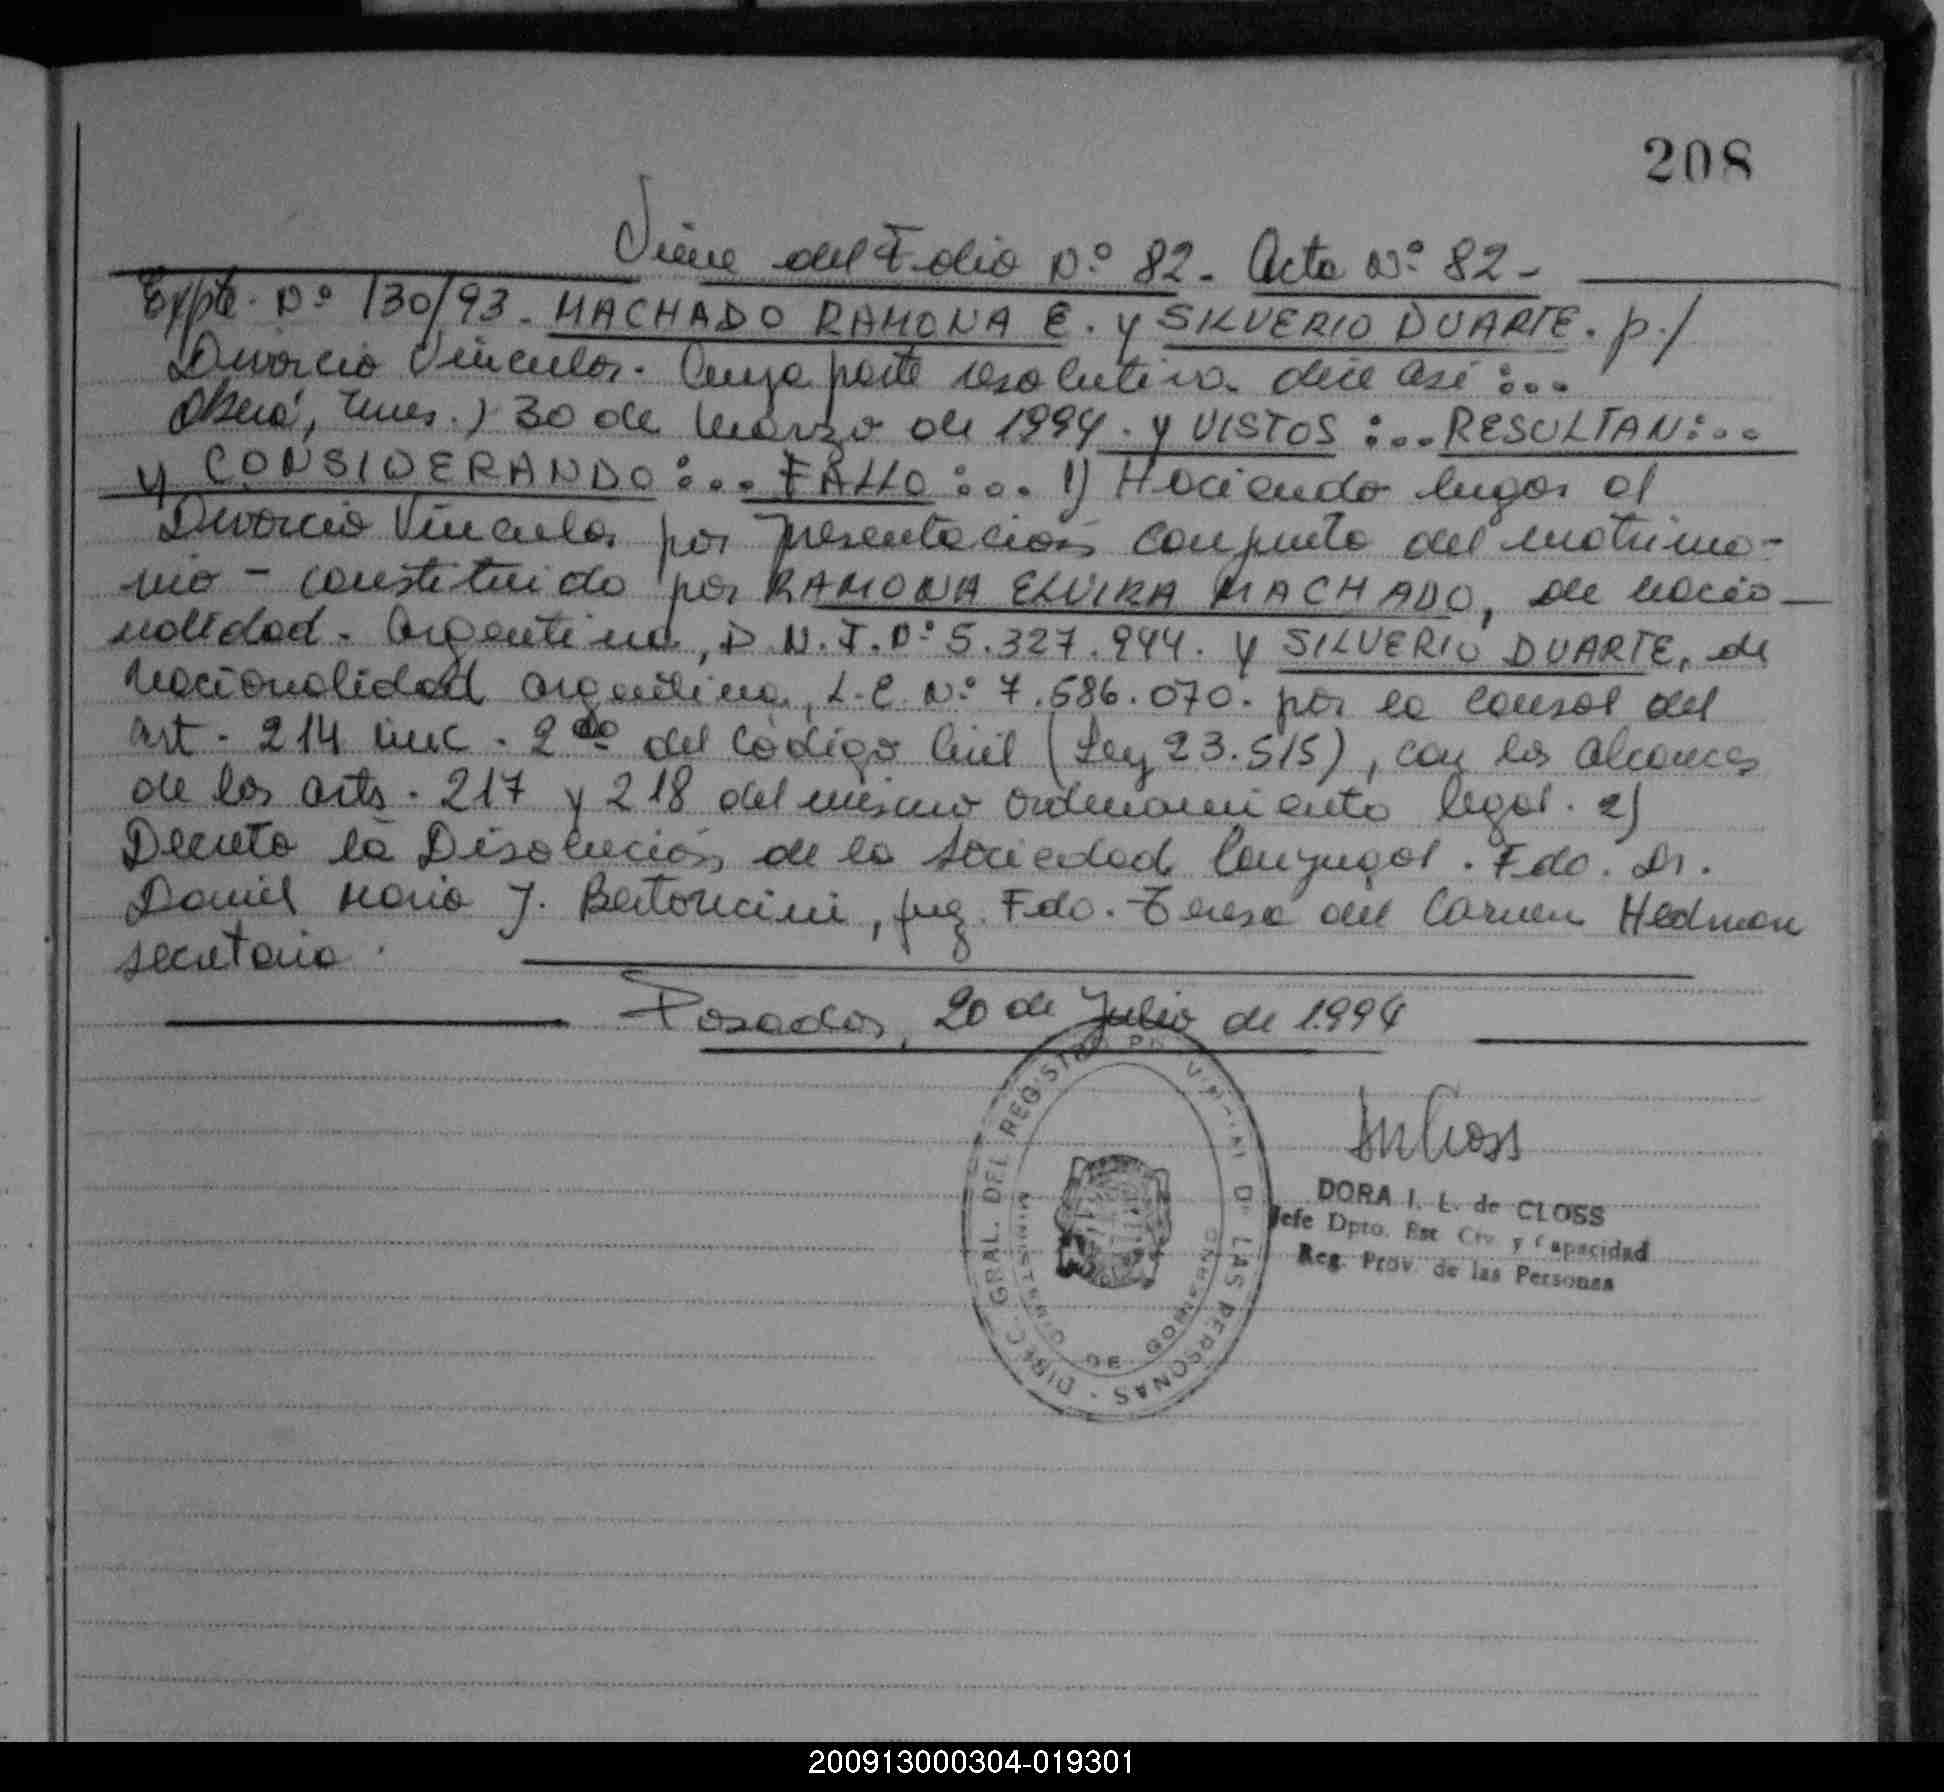 208
Viene del Folio Nº 82. Acta Nº 82 -
Expte. Nº 130/93. MACHADO RAMONA E. y SILVERIO DUARTE. p./
Divorcio Vincular. Cuya parte resolutiva dice así:...
Oberá, Mnes.) 30 de Marzo de 1994. y VISTOS:... RESULTAN:...
y CONSIDERANDO:... FALLO:... 1) Haciendo lugar al
Divorcio Vincular por presentación conjunta del matrimo-
nio - constituido por RAMONA ELVIRA MACHADO, de nacio-
nalidad. Argentina, D.N.I. Nº 5.327.944. y SILVERIO DUARTE, de
nacionalidad argentina, L.E. Nº 7.586.070. por la causal del
art. 214 inc. 2do del Código Civil (Ley 23.515), con los alcances
de los arts. 217 y 218 del mismo ordenamiento legal. 2)
Decreto la Disolución de la Sociedad Conyugal. Fdo. Dr.
Daniel Mario J. Bertoncini, juez. Fdo. Teresa del Carmen Hedman
secretaria.
Posadas, 20 de Julio de 1994
DIREC. GRAL. DEL REGISTRO PROVINCIAL DE LAS PERSONAS -
MINISTERIO DE GOBIERNO
DORA I. L. de CLOSS
Jefe Dpto. Est. Civ. y Capacidad
Reg. Prov. de las Personas
200913000304-019301